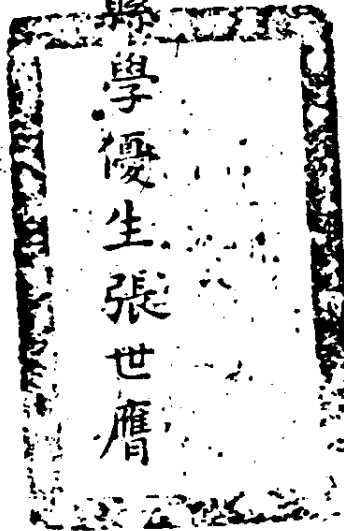 縣學優生張世膺